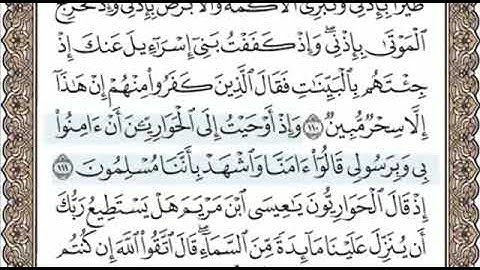 طَيْرًۢا بِإِذْنِى وَتُبْرِئُ ٱلْأَكْمَهَ وَٱلْأَبْرَصَ بِإِذْنِى وَإِذْ تُخْرِجُ
ٱلْمَوْتَىٰ بِإِذْنِى ۖ وَإِذْ كَفَفْتُ بَنِىٓ إِسْرَٰٓءِيلَ عَنكَ إِذْ
جِئْتَهُم بِٱلْبَيِّنَـٰتِ فَقَالَ ٱلَّذِينَ كَفَرُوا۟ مِنْهُمْ إِنْ هَـٰذَآ
إِلَّا سِحْرٌ مُّبِينٌ ١١٠ وَإِذْ أَوْحَيْتُ إِلَى ٱلْحَوَارِيِّـۧنَ أَنْ ءَامِنُوا۟
بِى وَبِرَسُولِى قَالُوٓا۟ ءَامَنَّا وَٱشْهَدْ بِأَنَّنَا مُسْلِمُونَ ١١١
إِذْ قَالَ ٱلْحَوَارِيُّونَ يَـٰعِيسَى ٱبْنَ مَرْيَمَ هَلْ يَسْتَطِيعُ رَبُّكَ
أَن يُنَزِّلَ عَلَيْنَا مَآئِدَةً مِّنَ ٱلسَّمَآءِ ۖ قَالَ ٱتَّقُوا۟ ٱللَّهَ إِن كُنتُم